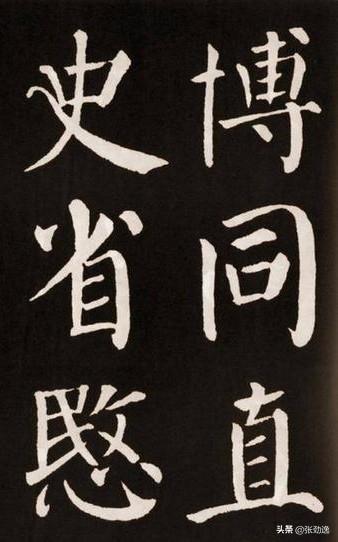 博同直
史省愍
头条@张劲逸